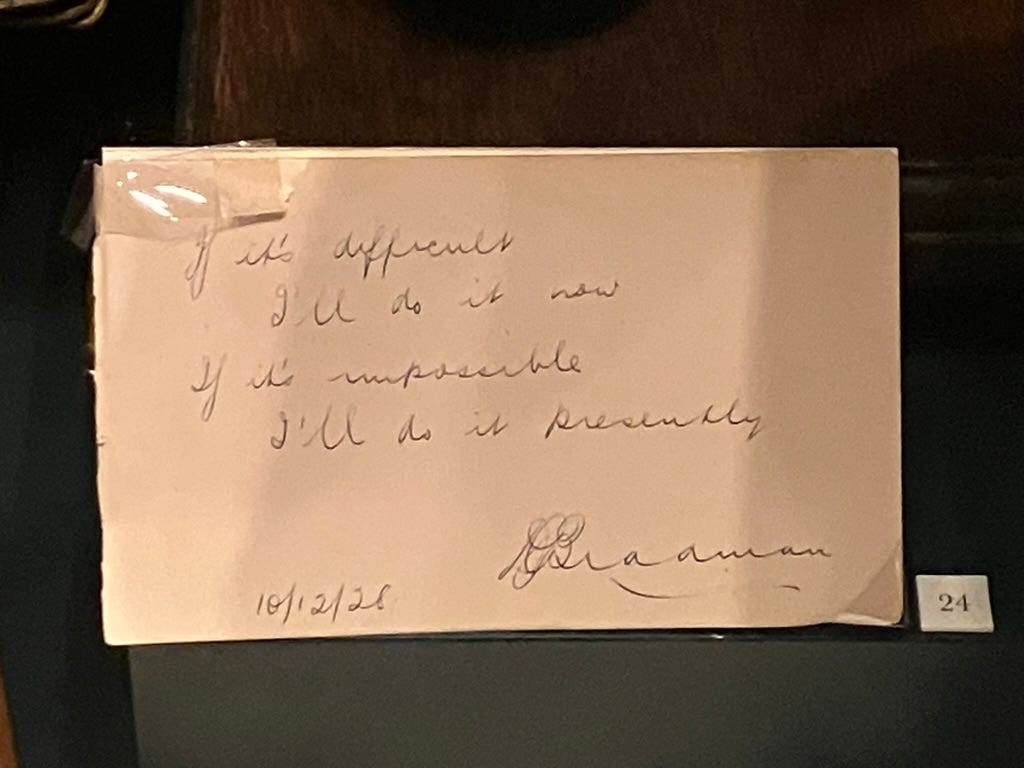 If it's difficult
I'll do it now
If it's impossible
I'll do it presently
DGBradman
10/12/28
24